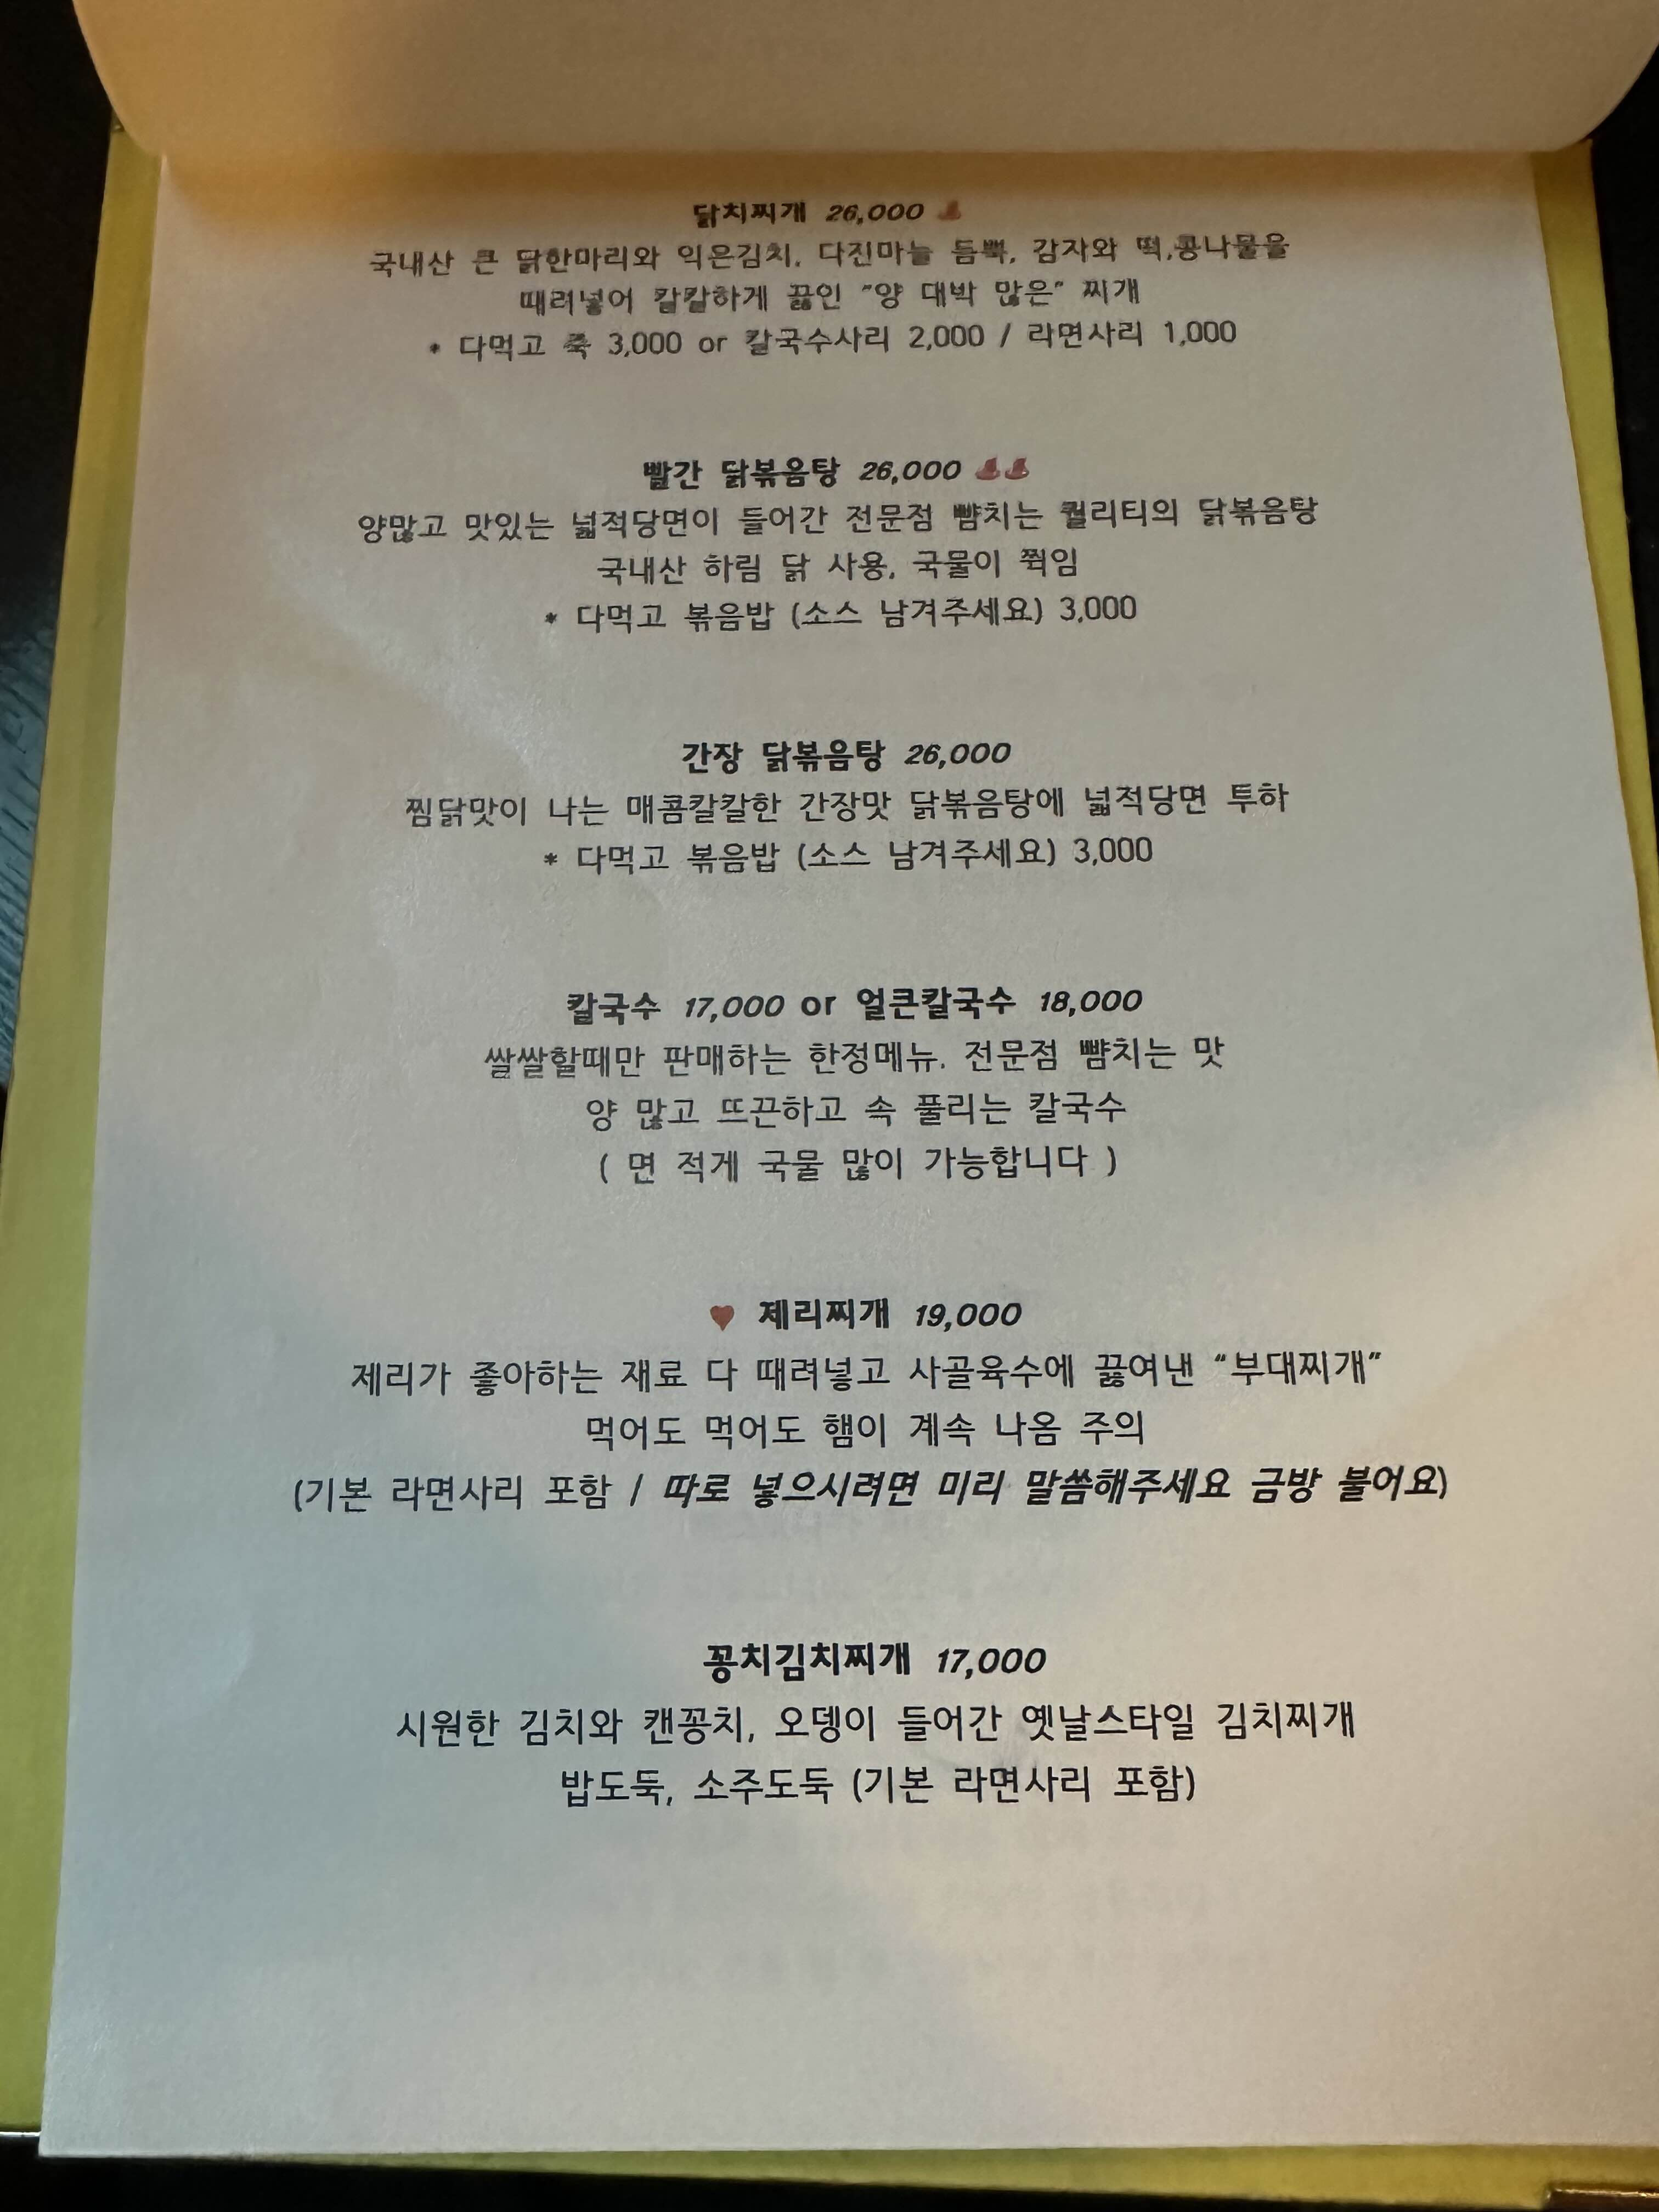 닭치찌개 26,000
국내산 큰 닭한마리와 익은김치, 다진마늘 듬뿍, 감자와 떡,콩나물을
때려넣어 칼칼하게 끓인 "양 대박 많은" 찌개
* 다먹고 죽 3,000 or 칼국수사리 2,000 / 라면사리 1,000
빨간 닭볶음탕 26,000
양많고 맛있는 넓적당면이 들어간 전문점 뺨치는 퀄리티의 닭볶음탕
국내산 하림 닭 사용, 국물이 쥑임
* 다먹고 볶음밥 (소스 남겨주세요) 3,000
간장 닭볶음탕 26,000
찜닭맛이 나는 매콤칼칼한 간장맛 닭볶음탕에 넓적당면 투하
* 다먹고 볶음밥 (소스 남겨주세요) 3,000
칼국수 17,000 or 얼큰칼국수 18,000
쌀쌀할때만 판매하는 한정메뉴. 전문점 뺨치는 맛
양 많고 뜨끈하고 속 풀리는 칼국수
( 면 적게 국물 많이 가능합니다 )
♥ 제리찌개 19,000
제리가 좋아하는 재료 다 때려넣고 사골육수에 끓여낸 "부대찌개"
먹어도 먹어도 햄이 계속 나옴 주의
(기본 라면사리 포함 / 따로 넣으시려면 미리 말씀해주세요 금방 불어요)
꽁치김치찌개 17,000
시원한 김치와 캔꽁치, 오뎅이 들어간 옛날스타일 김치찌개
밥도둑, 소주도둑 (기본 라면사리 포함)